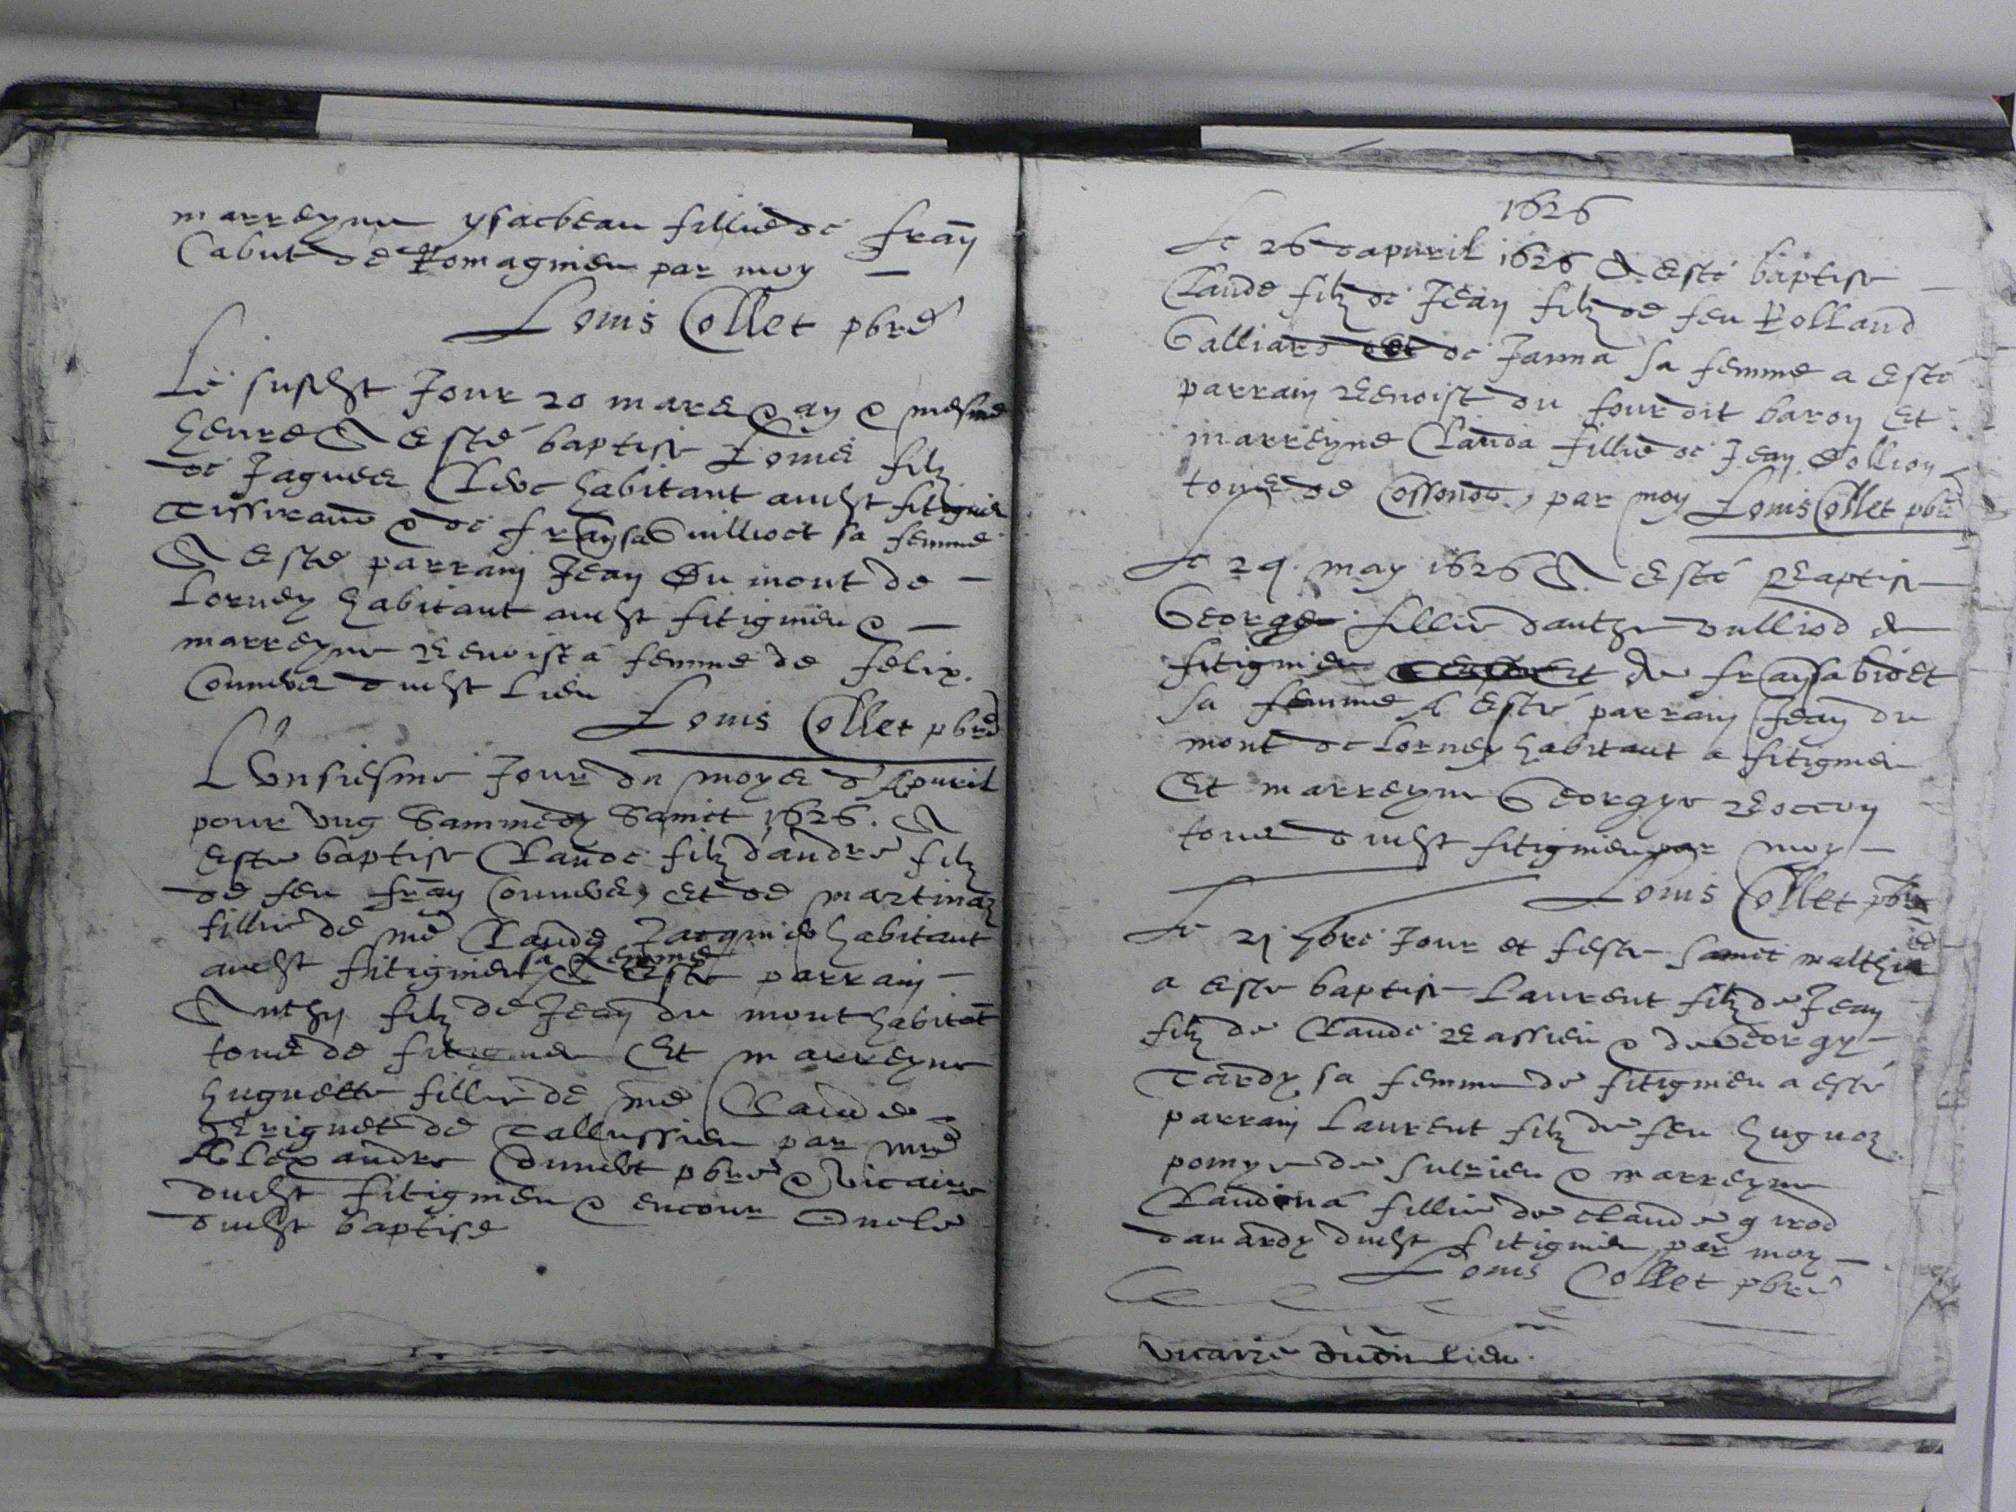 marreyne ysabeau fillie de Fran
Cabut de Romagnieu par moy
Louis Collet pbre
Le susdit Jour 20 mars an e mesme
heure A esté baptise Louis filz
de Jaques habitant audit fitignieu
Tissirand e de fransa Guilliot sa femme
A esté parrain Jean Du mont de
Lorney habitant audit fitignieu e
marreyne Benoista femme de Felix
dudit lieu
Louis Collet pbre
L'Unsiesme Jour du moys d'Apvril
pour ung Sammedy Sainct 1626. A
este baptise Claude filz d'andre filz
de feu fran et de martinaz
fillie de me Claude habitant
audit fitignieu sa femme A Este parrain
Anthy filz de Jean du mont habitat
toue de fitignieu Et marreyne
huguette fillie de me Claude
de par mre
Alexandre pbre e Vicaire
dudit fitignieu e encour Oncle
dudit baptise
1626
Le 26 d'apvril 1626 A Esté baptise
Claude filz de Jean filz de feu Rolland
Galliard de Janna sa femme a esté
parrain Benoist du four dit baron Et
marreyne Clauda fillie de Jean
toue de par moy Louis Collet pbre
Le 24. may 1626 A Esté Baptise
George fillie d'anthe vulliod de
fitignieu de fransa bidet
sa femme A Esté parrain Jean du
mont de Lorney habitant a fitignieu
Et marreyne George
toue dudit fitignieu par moy
Louis Collet pbre
Le 21 7bre Jour et feste Sainct Matthieu
a este baptise Laurent filz de Jean
filz de Claude Bassieu e de Georgy
Tardy sa femme de fitignieu a esté
parrain Laurent filz de feu huguoz
de e marreyne
Claudina fillie de Claude girod
dudit fitignieu par moy
Louis Collet pbre
vicaire dudit lieu.